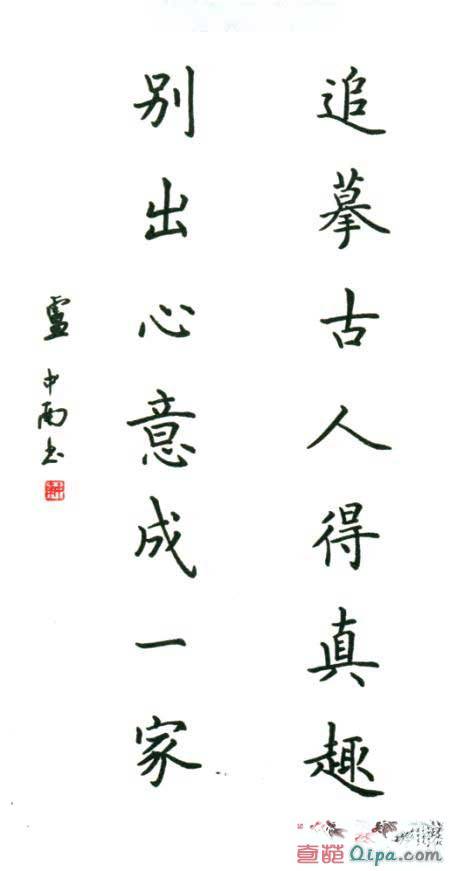 追摹古人得真趣
别出心意成一家
盧中南书
Qipa.com